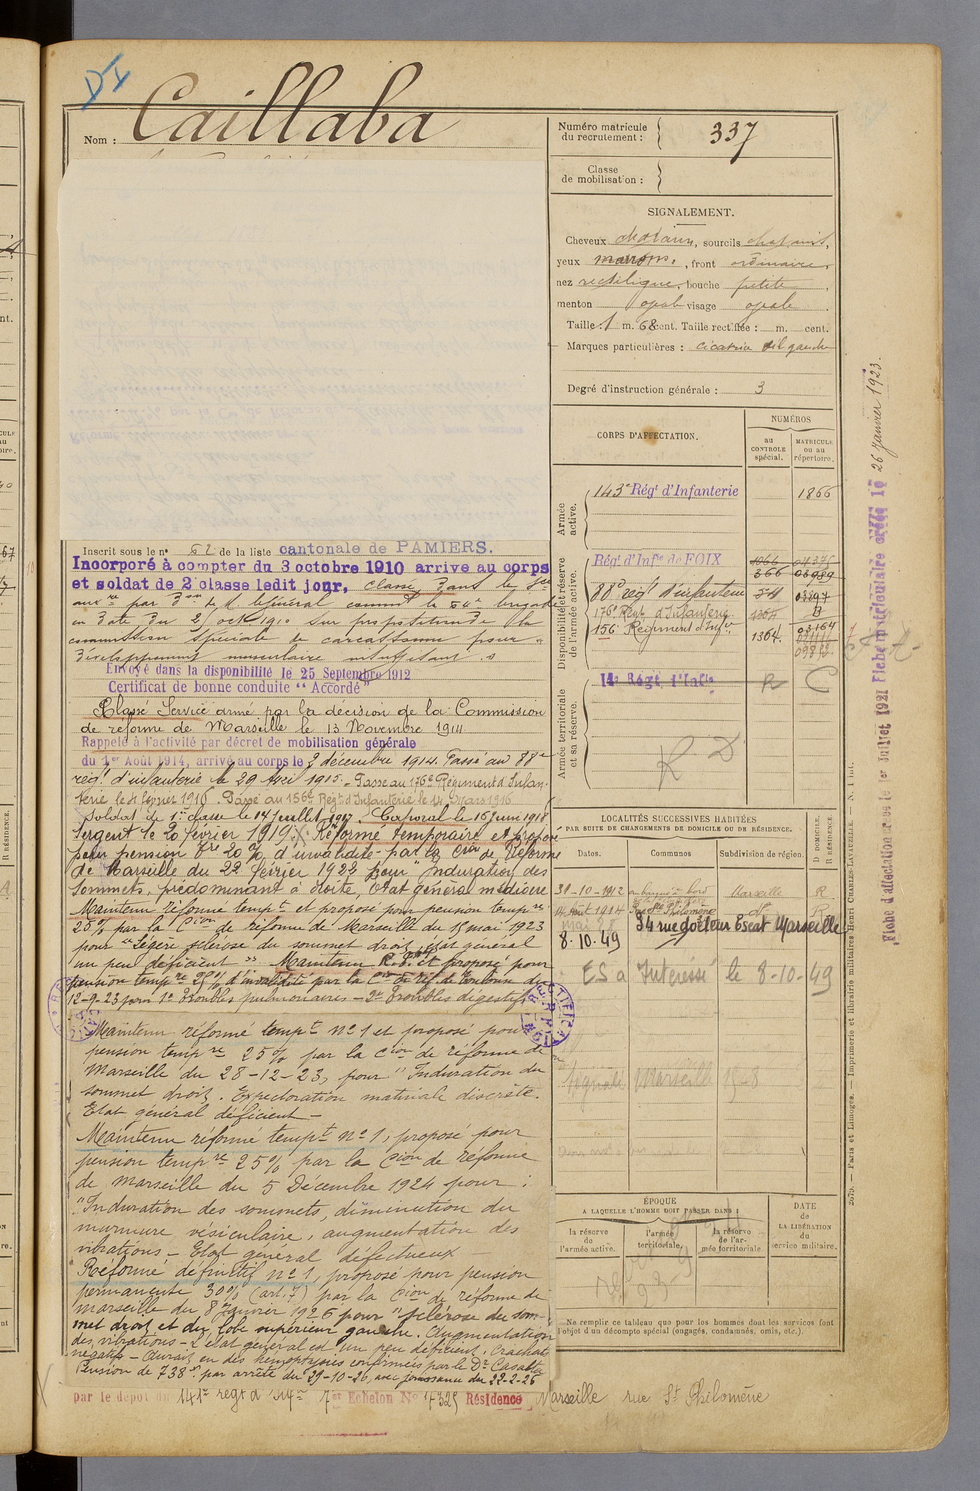 Nom : Caillaba
Numéro matricule du recrutement : 337
Classe de mobilisation :
SIGNALEMENT.
Cheveux chatains, sourcils chatains,
yeux marrons, front ordinaire,
nez rectiligne, bouche petite,
menton visage
Taille 1 m. 68 cent. Taille rectifiée : m. cent.
Marques particulières : cicatrice œil gauche
Degré d'instruction générale : 3
CORPS D'AFFECTATION.
NUMÉROS
au CONTROLE spécial.
MATRICULE ou au répertoire.
Armée active.
143e Régt d'Infanterie 1866
Disponibilité et réserve de l'armée active.
Régt d'Infie de FOIX
366 03989
88e régt d'infanterie
176e Régt d'Infanterie 1364
156 Régiment d'Infie 1364.
Armée territoriale et sa réserve.
14e Régt d'Infie
R D
Inscrit sous le no 62 de la liste cantonale de PAMIERS.
Incorporé à compter du 3 octobre 1910 arrivé au corps
et soldat de 2e classe ledit jour, classé dans le Sce
auxre par Don de M. le Général commt la 64e brigade
en date du 21 octe 1910 sur proposition de la
commission spéciale de carcassonne pour "
développement musculaire insuffisant. "
Envoyé dans la disponibilité le 25 Septembre 1912
Certificat de bonne conduite "Accordé"
Classé Service armé par la décision de la Commission
de réforme de Marseille le 13 Novembre 1914
Rappelé à l'activité par décret de mobilisation générale
du 1er Août 1914, arrivé au corps le 3 décembre 1914. Passé au 88e
régt d'infanterie le 29 1915. Passé au 176e Régiment d'Infan-
terie le 21 février 1916. Passé au 156e Régt d'Infanterie le 14 Mars 1916
Soldat de 1ère classe le 14 Juillet 1917. Caporal le 16 Juin 1918
Sergent le 20 février 1919. Réformé temporaire et proposé
pour pension tre 20% d'invalidité par la Cion de Réforme
de Marseille du 22 février 1922 pour induration des
sommets, prédominant à droite, état général médiocre
Maintenu réformé tempt et proposé pour pension tempre
25% par la Cion de réforme de Marseille du 15 mai 1923
pour "légère sclérose du sommet droit, état général
un peu déficient" Maintenu R. T. et proposé pour
pension tempre 25% d'invalidité par la Cion de réf. de Toulouse du
12-9-23 pour 1o Troubles pulmonaires - 2o Troubles digestifs
Maintenu réformé tempt no 1 et proposé pour
pension tempre 25% par la Cion de réforme de
Marseille du 28-12-23, pour "Induration du
sommet droit. Expectoration matinale discrète.
Etat général déficient -
Maintenu réformé tempt no 1, proposé pour
pension tempre 25% par la Cion de réforme
de Marseille du 5 Décembre 1924 pour :
"Induration des sommets, diminution du
murmure vésiculaire, augmentation des
vibrations - Etat général défectueux
Réformé définitif no 1, proposé pour pension
permanente 30% (art. 7) par la Cion de réforme de
marseille du 8 Janvier 1926 pour "sclérose du som-
met droit et du lobe supérieur gauche. Augmentation
des vibrations - L'état général est un peu déficient. Crachats
négatifs - Aurait eu des hémoptysies confirmées par le Dr Casalta
Pension de 738 par arrêté du 29-10-26, avec jouissance du 22-2-26
LOCALITÉS SUCCESSIVES HABITÉES
PAR SUITE DE CHANGEMENTS DE DOMICILE OU DE RÉSIDENCE.
Dates. Communes Subdivision de région. D DOMICILE. R RÉSIDENCE.
31-10-1912 Marseille R
14 Août 1914 Rue Ste Philomène do R
8.10.49 34 rue docteur Escat Marseille
ES a Intéressé le 8-10-49
Marseille
ÉPOQUE
A LAQUELLE L'HOMME DOIT PASSER DANS :
la réserve de l'armée active.
l'armée territoriale.
la réserve de l'armée territoriale.
DATE de LA LIBÉRATION du service militaire.
Ne remplir ce tableau que pour les hommes dont les services font
l'objet d'un décompte spécial (engagés, condamnés, omis, etc.).
par le dépôt du 141e régt d' Infie 7er Echelon No 4325 Résidence Marseille rue Ste Philomène
Fiche d'affectation créée le 1er Juillet 1921 Fiche matriculaire créée le 26 Janvier 1923.
Paris et Limoges. — Imprimerie et librairie militaires Henri CHARLES-LAVAUZELLE.